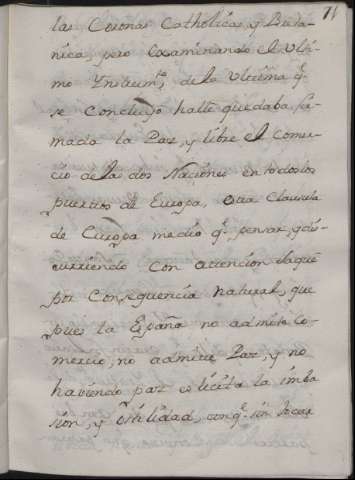 71
las Coronas Catholica, y Brita-
nica; pero Examinando el Ulti-
mo Ynstrumto, de la Ultima q.
se Concluyo hallé quedaba for-
mada la Paz, y libre el Comer-
cio de las dos Naciones en todos los
puertos de Europa, cuia Clausula
de Europa medio q. pensar, y dis-
curriendo con atencion saque
por Consequencia natural, que
pues la España no admite Co-
mercio, no admite Paz, y no
haviendo paz es licita la imba
sion, y ostilidad, conq. sin tocar